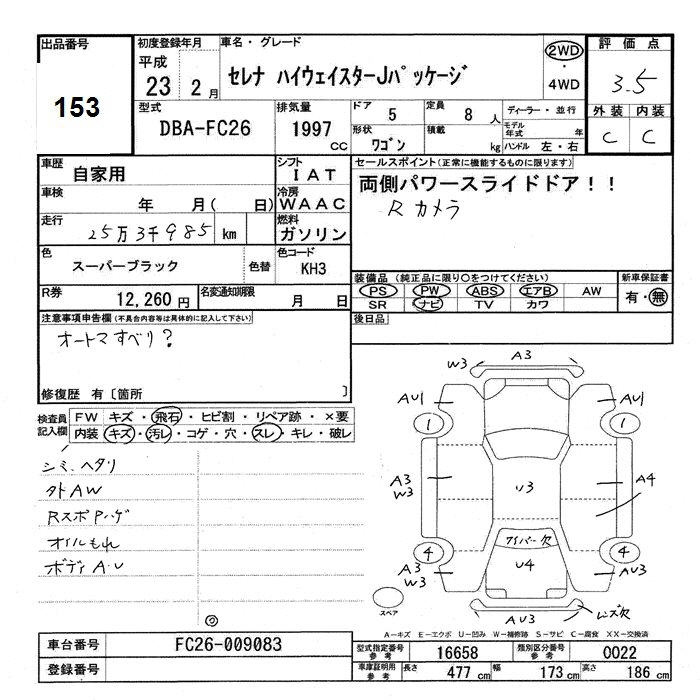 出品番号
153
初度登録年月
平成
23 2 月
車名・グレード
セレナ ハイウェイスターJパッケージ
2WD
・
4WD
評価点
3.5
外装 内装
C C
型式
DBA-FC26
排気量
1997 CC
ドア 5
定員 8 人
形状 ワゴン
積載 kg
ディーラー・並行
モデル年式 年
ハンドル 左・右
車歴 自家用
シフト IAT
車検 年 月( 日)
冷房 WAAC
走行 25万3千985 km
燃料 ガソリン
色 スーパーブラック 色替
色コード KH3
R券 12,260 円
名変通知期限 月 日
セールスポイント(正常に機能するものに限ります)
両側パワースライドドア!!
Rカメラ
装備品 (純正品に限り○をつけてください)
PS PW ABS エアB AW
SR ナビ TV カワ
新車保証書
有・無
後日品
注意事項申告欄(不具合内容等は具体的に記入して下さい)
オートマすべり?
修復歴 有〔箇所 〕
検査員記入欄
FW キズ・飛石・ヒビ割・リペア跡・×要
内装 キズ・汚レ・コゲ・穴・スレ・キレ・破レ
シミ、ヘタリ
外AW
RスポPハゲ
オイルもれ
ボディA・U
◎
W3 A3
AU1 AU1
1 1
A3
W3
U3
A4
ワイパー欠
4 4
A3
W3
U4
AU3
スペア
AU3
レンズ欠
A-キズ E-エクボ U-凹み W-補修跡 S-サビ C-腐食 XX-交換済
車台番号 FC26-009083
登録番号
型式指定番号 参考 16658
類別区分番号 参考 0022
車庫証明用 参考 長さ 477 cm 幅 173 cm 高さ 186 cm